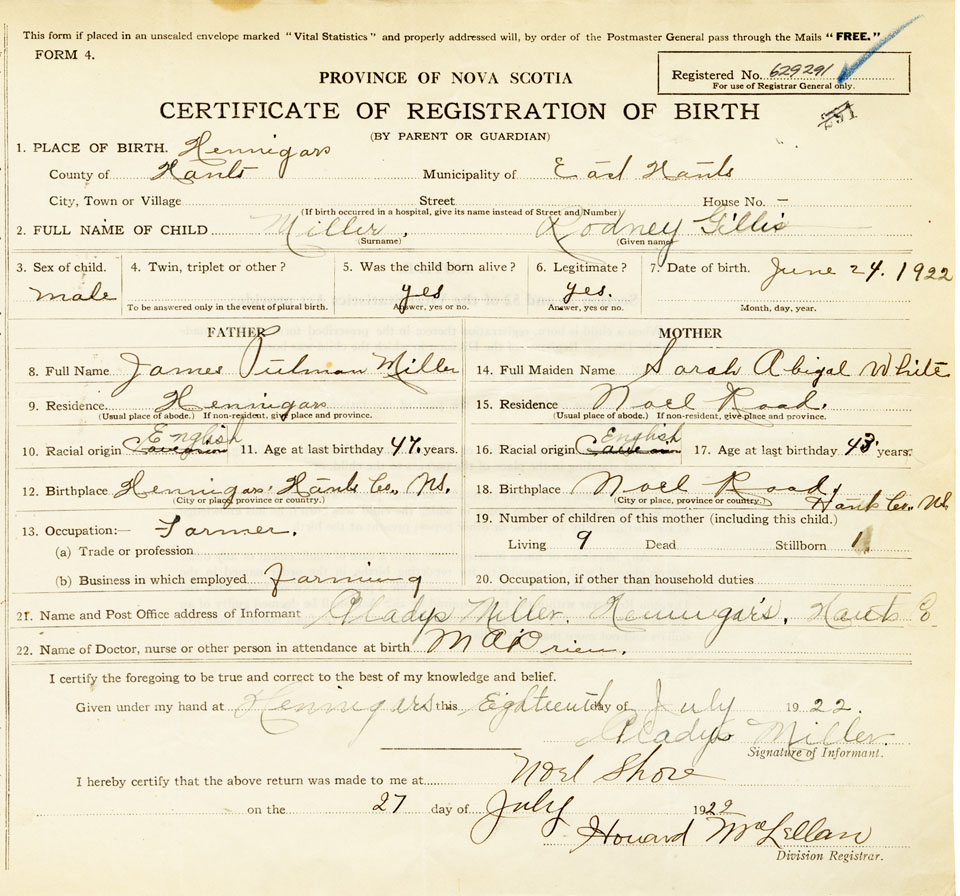 This form if placed in an unsealed envelope marked "Vital Statistics" and properly addressed will, by order of the Postmaster General pass through the Mails "FREE."
FORM 4.
PROVINCE OF NOVA SCOTIA
Registered No. 629291
For use of Registrar General only.
CERTIFICATE OF REGISTRATION OF BIRTH
(BY PARENT OR GUARDIAN)
1. PLACE OF BIRTH. Hennigars
County of Hants Municipality of East Hants
City, Town or Village Street House No. –
(If birth occurred in a hospital, give its name instead of Street and Number)
2. FULL NAME OF CHILD Miller, Rodney Gillis
(Surname) (Given name)
3. Sex of child. 4. Twin, triplet or other? 5. Was the child born alive? 6. Legitimate? 7. Date of birth. June 24. 1922
male yes yes.
To be answered only in the event of plural birth. Answer, yes or no. Answer, yes or no. Month, day, year.
FATHER MOTHER
8. Full Name James Putman Miller 14. Full Maiden Name Sarah Abigal White
9. Residence. Hennigars 15. Residence Noel Road.
(Usual place of abode.) If non-resident, give place and province. (Usual place of abode.) If non-resident, give place and province.
10. Racial origin English 11. Age at last birthday 47. years. 16. Racial origin English 17. Age at last birthday 43 years.
12. Birthplace Hennigars, Hants Co., NS. 18. Birthplace Noel Road, Hants Co., NS
(City or place, province or country.) (City or place, province or country.)
13. Occupation:— Farmer. 19. Number of children of this mother (including this child.)
(a) Trade or profession Living 9 Dead Stillborn 1
(b) Business in which employed Farming 20. Occupation, if other than household duties
21. Name and Post Office address of Informant Gladys Miller, Hennigar's, Hants
22. Name of Doctor, nurse or other person in attendance at birth
I certify the foregoing to be true and correct to the best of my knowledge and belief.
Given under my hand at Hennigars this Eighteenth day of July 1922.
Gladys Miller.
Signature of Informant.
I hereby certify that the above return was made to me at Noel Shore
on the 27 day of July 1922
Howard McLellan
Division Registrar.